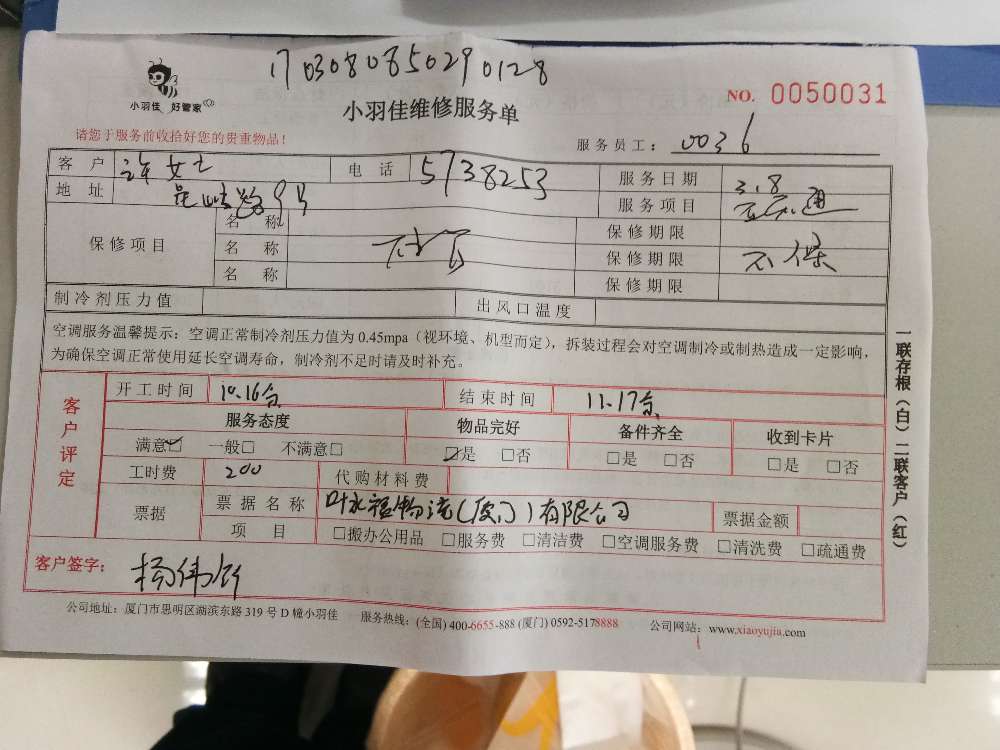 1703080850290128
小羽佳 好管家
小羽佳维修服务单
NO. 0050031
请您于服务前收拾好您的贵重物品！
服务员工： 0036
客户 许女士 电话 5738253 服务日期 3.8
地址 号 服务项目 通
保修项目 名称 保修期限
名称 保修期限 不保
名称 保修期限
制冷剂压力值 出风口温度
空调服务温馨提示：空调正常制冷剂压力值为 0.45mpa（视环境、机型而定），拆装过程会对空调制冷或制热造成一定影响，
为确保空调正常使用延长空调寿命，制冷剂不足时请及时补充。
客户评定
开工时间 10.16 结束时间 11.17
服务态度 物品完好 备件齐全 收到卡片
满意☑ 一般□ 不满意□ ☑是 □否 □是 □否 □是 □否
工时费 200 代购材料费
票据 票据名称 叶水福物流(厦门)有限公司 票据金额
项目 □搬办公用品 □服务费 □清洁费 □空调服务费 □清洗费 □疏通费
客户签字：
公司地址：厦门市思明区湖滨东路 319 号 D 幢小羽佳 服务热线：(全国) 400-6655-888 (厦门) 0592-5178888 公司网站：www.xiaoyujia.com
一联存根（白）二联客户（红）